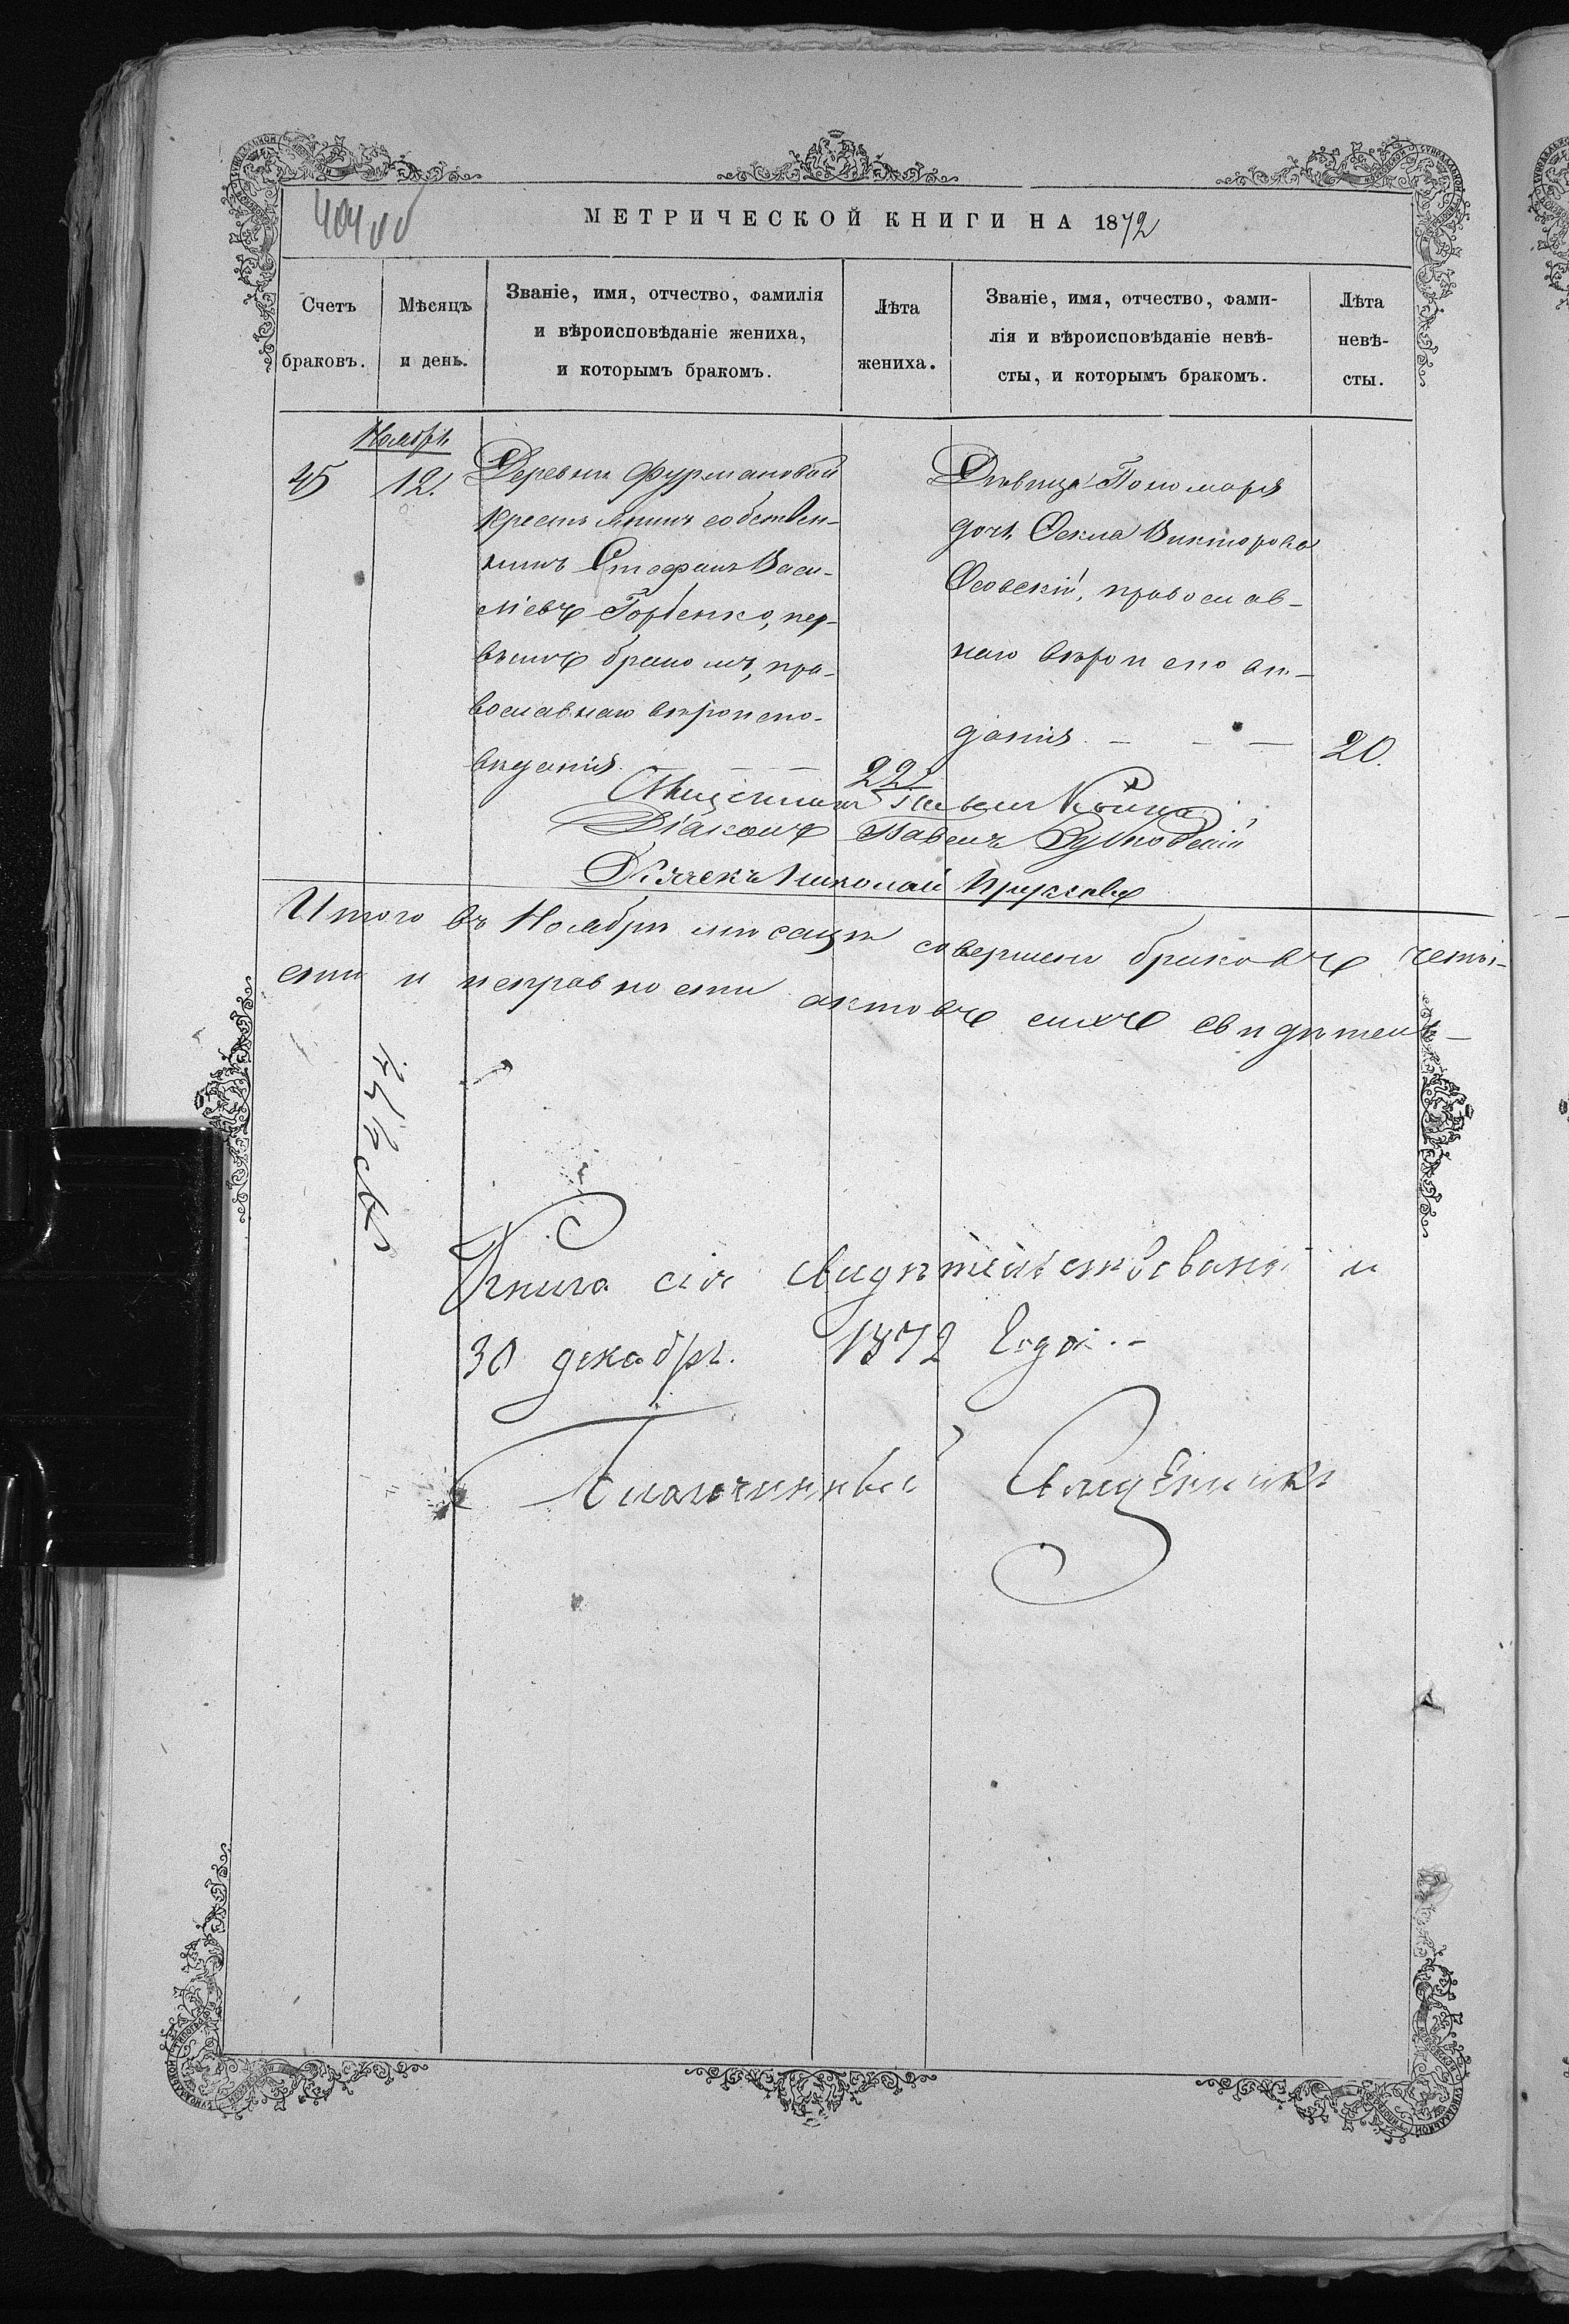 МЕТРИЧЕСКОЙ КНИГИ НА 1872
Счетъ браковъ.
Мѣсяцъ и день.
Званіе, имя, отчество, фамилія
и вѣроисповѣданіе жениха,
и которымъ бракомъ.
Лѣта
жениха.
Званіе, имя, отчество, фами-
лія и вѣроисповѣданіе невѣ-
сты, и которымъ бракомъ.
Лѣта
невѣ-
сты.
Ноябрь
45
12.
Деревни Фурмановой
крестьянинъ собствен-
никъ Стефанъ Васи-
ліевъ Горбенко, пер-
вымъ бракомъ, пра-
вославнаго вѣроиспо-
вѣданія.
22
Дѣвица Пономаря
дочь Ѳекла Викторова
православ-
наго вѣроисповѣ-
данія
20.
Священникъ
Діаконъ Павелъ
Дьячекъ Николай
Итого въ Ноябрѣ мѣсяцѣ совершено браковъ
и исправности актовъ сихъ свидѣтель-
Книга сія свидѣтельствована
30 декабря 1872 года.
Благочинный Священникъ